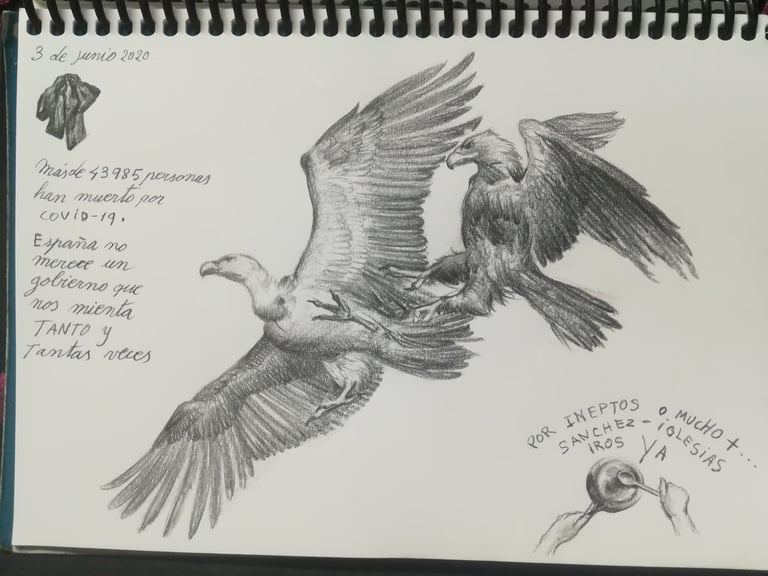 3 de junio 2020
Más de 43985 personas
han muerto por
COVID-19.
España no
merece un
gobierno que
nos mienta
TANTO y
Tantas veces
POR INEPTOS O MUCHO + ...
SANCHEZ - IGLESIAS
IROS YA